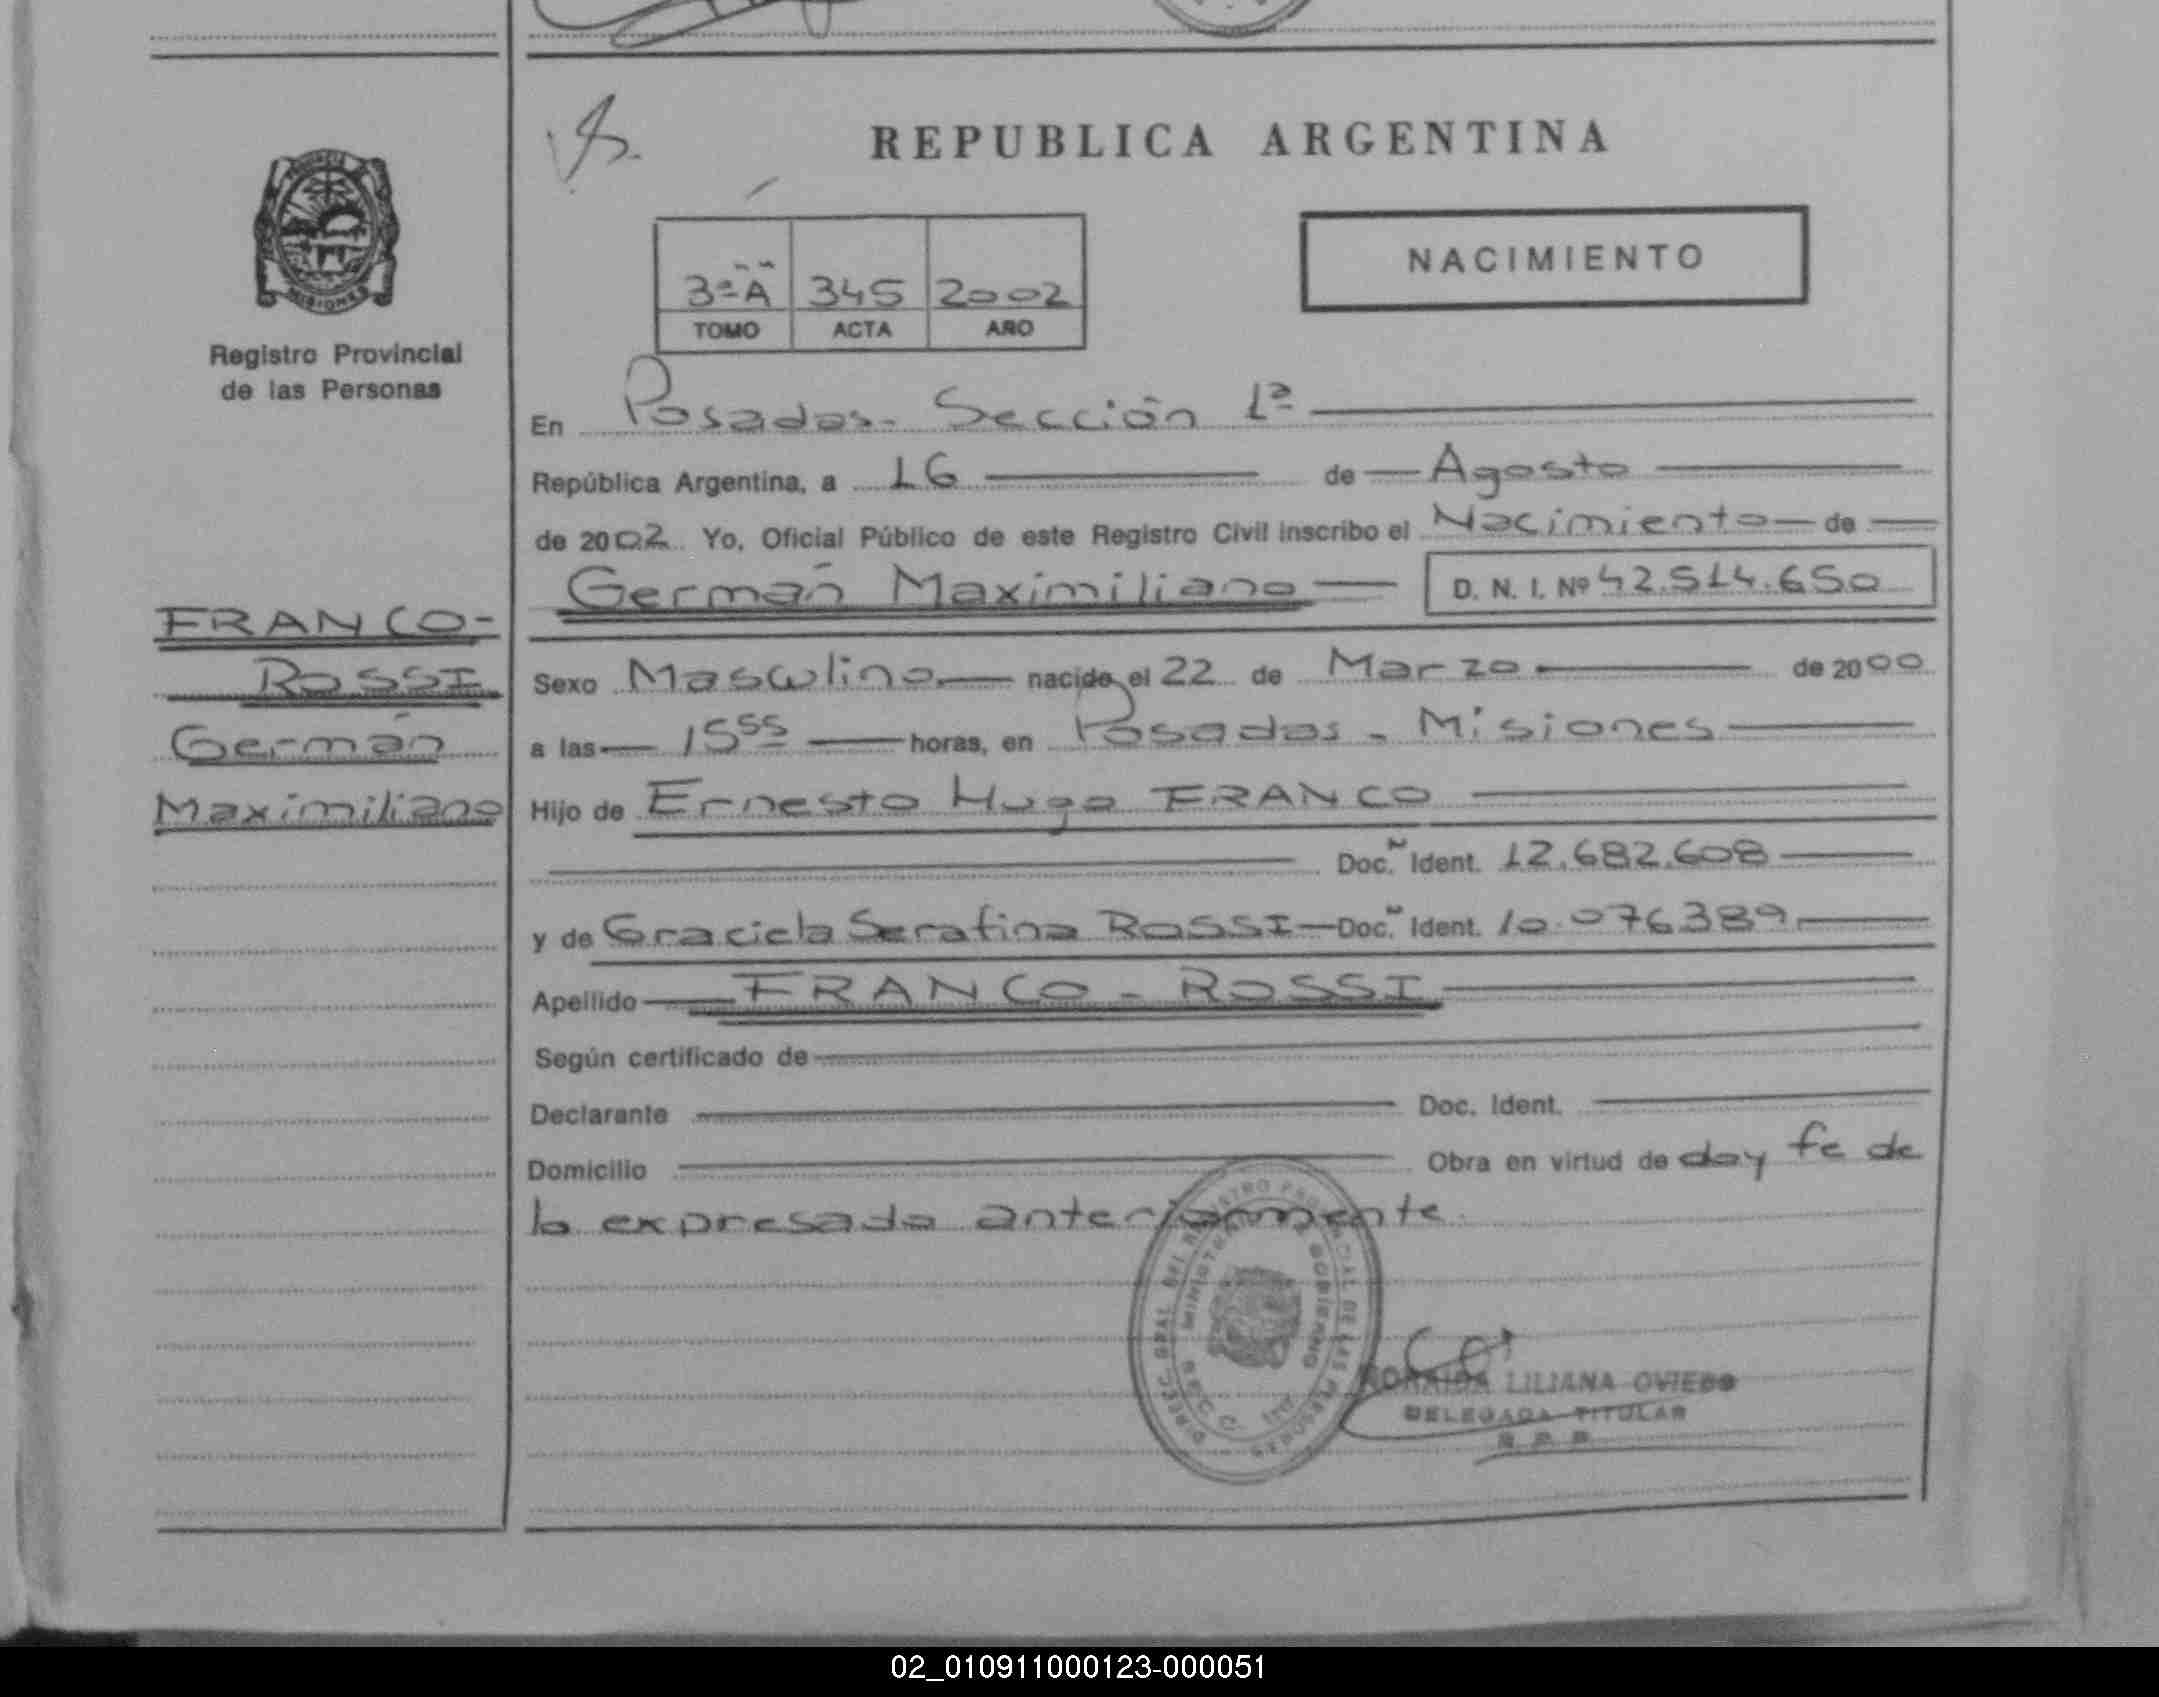 REPUBLICA ARGENTINA
NACIMIENTO
3ª "A" 345 2002
TOMO ACTA AÑO
MISIONES
Registro Provincial
de las Personas
FRANCO-
ROSSI
Germán
Maximiliano
En Posadas- Sección 1ª
República Argentina, a 16 de Agosto
de 2002 Yo, Oficial Público de este Registro Civil inscribo el Nacimiento de
Germán Maximiliano D. N. I. Nº 42.514.650
Sexo Masculino nacido el 22 de Marzo de 2000
a las 15 55 horas, en Posadas - Misiones
Hijo de Ernesto Hugo FRANCO
Doc. Ident. 12.682.608
y de Graciela Serafina ROSSI Doc. Ident. 10.076.389
Apellido FRANCO - ROSSI
Según certificado de
Declarante Doc. Ident.
Domicilio Obra en virtud de doy fe de
lo expresado anteriormente.
DIREC. GRAL. DEL REGISTRO PROVINCIAL DE LAS PERSONAS
MINISTERIO DE GOBIERNO
LILIANA OVIEDO
DELEGADA TITULAR
R. P. P.
02_010911000123-000051